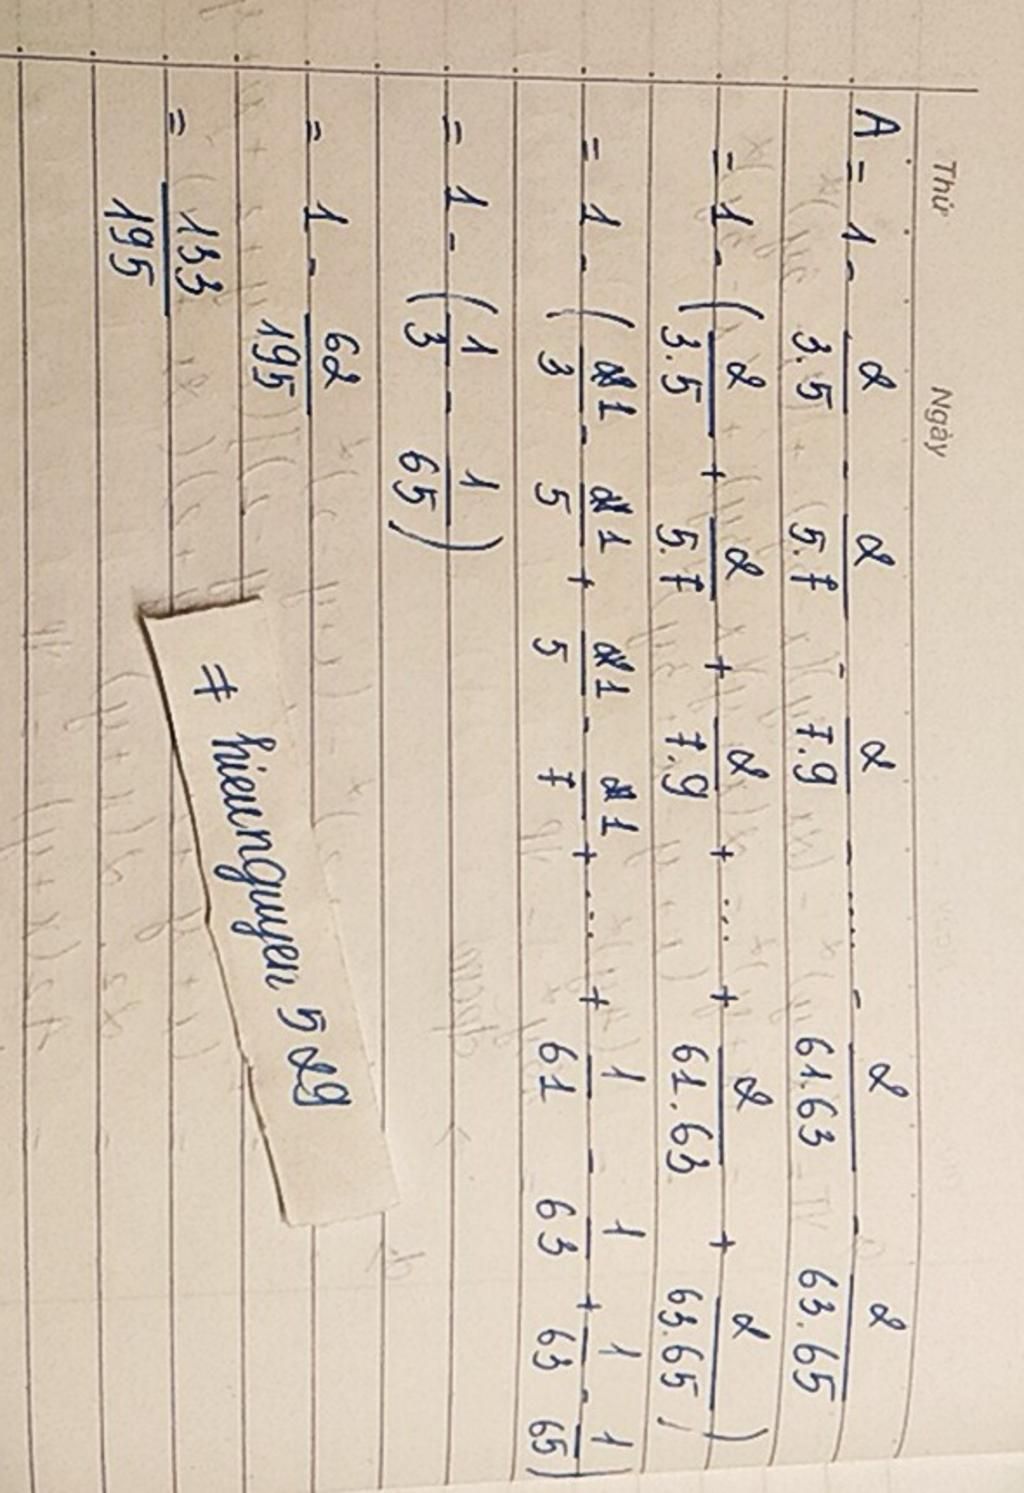 Thứ Ngày
A = 1 - 2/3.5 - 2/5.7 - 2/7.9 - .... - 2/61.63 - 2/63.65
= 1 - ( 2/3.5 + 2/5.7 + 2/7.9 + ... + 2/61.63 + 2/63.65 )
= 1 - ( 1/3 - 1/5 + 1/5 - 1/7 + ... + 1/61 - 1/63 + 1/63 - 1/65 )
= 1 - ( 1/3 - 1/65 )
= 1 - 62/195
= 133/195
# hieunguyen 529